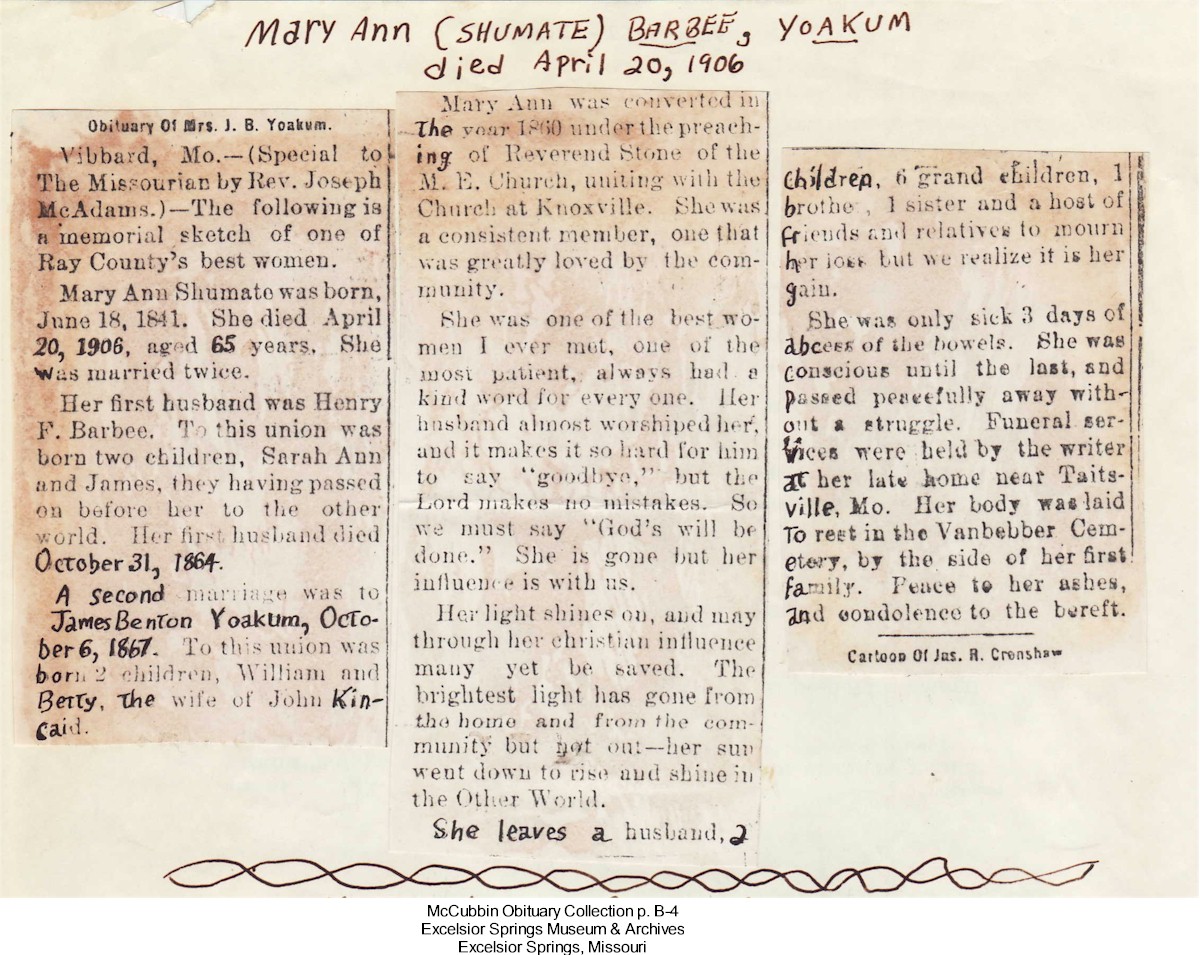 Mary Ann (SHUMATE) BARBEE, YOAKUM
died April 20, 1906
Obituary Of Mrs. J. B. Yoakum.
Vibbard, Mo.—(Special to
The Missourian by Rev. Joseph
McAdams.)—The following is
a memorial sketch of one of
Ray County's best women.
Mary Ann Shumate was born,
June 18, 1841. She died April
20, 1906, aged 65 years. She
was married twice.
Her first husband was Henry
F. Barbee. To this union was
born two children, Sarah Ann
and James, they having passed
on before her to the other
world. Her first husband died
October 31, 1864.
A second marriage was to
James Benton Yoakum, Octo-
ber 6, 1867. To this union was
born 2 children, William and
Betty, the wife of John Kin-
caid.
Mary Ann was converted in
The year 1860 under the preach-
ing of Reverend Stone of the
M. E. Church, uniting with the
Church at Knoxville. She was
a consistent member, one that
was greatly loved by the com-
munity.
She was one of the best wo-
men I ever met, one of the
most patient, always had a
kind word for every one. Her
husband almost worshiped her,
and it makes it so hard for him
to say "goodbye," but the
Lord makes no mistakes. So
we must say "God's will be
done." She is gone but her
influence is with us.
Her light shines on, and may
through her christian influence
many yet be saved. The
brightest light has gone from
the home and from the com-
munity but not out—her sun
went down to rise and shine in
the Other World.
She leaves a husband, 2
children, 6 grand children, 1
brother, 1 sister and a host of
friends and relatives to mourn
her loss but we realize it is her
gain.
She was only sick 3 days of
abcess of the bowels. She was
conscious until the last, and
passed peacefully away with-
out a struggle. Funeral ser-
vices were held by the writer
at her late home near Taits-
ville, Mo. Her body was laid
To rest in the Vanbebber Cem-
etery, by the side of her first
family. Peace to her ashes,
and condolence to the bereft.
Cartoon Of Jas. R. Crenshaw
McCubbin Obituary Collection p. B-4
Excelsior Springs Museum & Archives
Excelsior Springs, Missouri